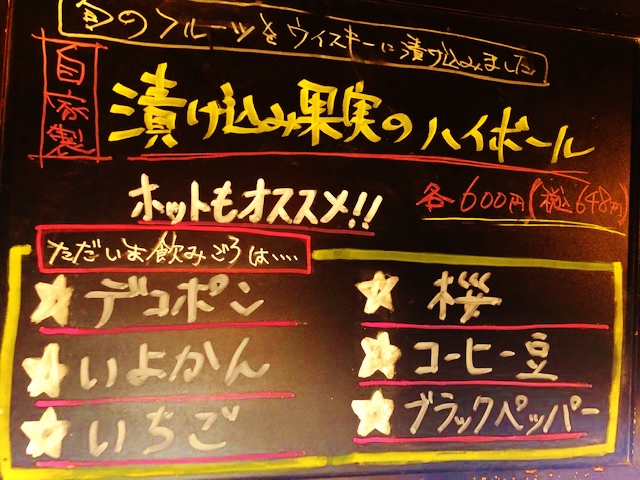 旬のフルーツをウイスキーに漬け込みました
自家製
漬け込み果実のハイボール
ホットもオススメ!!
各600円(税込648円)
ただいま飲みごろは‥‥
☆デコポン
☆いよかん
☆いちご
☆桜
☆コーヒー豆
☆ブラックペッパー